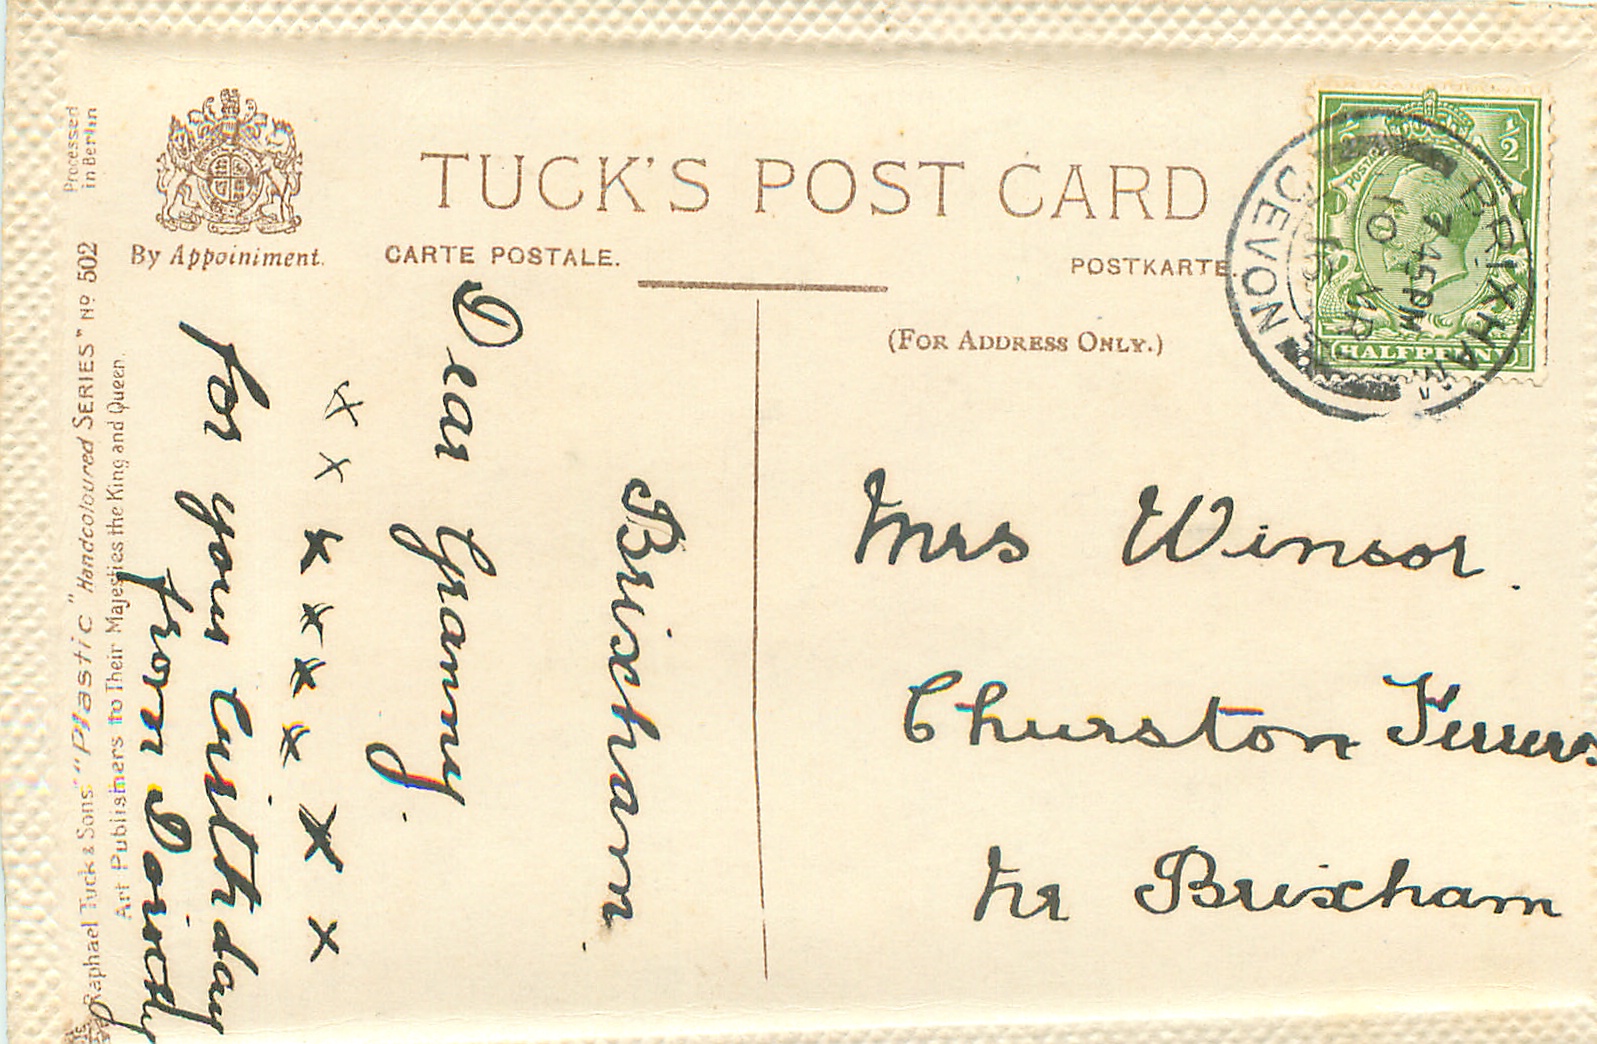 TUCK'S POST CARD
CARTE POSTALE.
POSTKARTE
By Appointment.
(FOR ADDRESS ONLY.)
Processed
in Berlin
Raphael Tuck & Sons' "Plastic" Handcoloured SERIES" No 502
Art Publishers to Their Majesties the King and Queen.
½
½
POSTAGE
HALFPENNY
BRIXHAM
7 45 PM
10 MR
DEVON
Brixham.
Dear Granny.
x x x x x x x x
for your birthday
from
Mrs Winsor.
Churston Ferrers
Nr Brixham